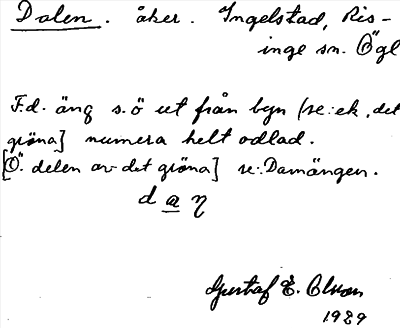 Dalen. åker. Ingelstad, Ris-
inge sn. Ögl
F.d. äng s.ö ut från byn (se: ek, det
gröna] numera helt odlad.
[Ö. delen av det gröna] se: Damängen.
d a η
Gustaf E.
1929